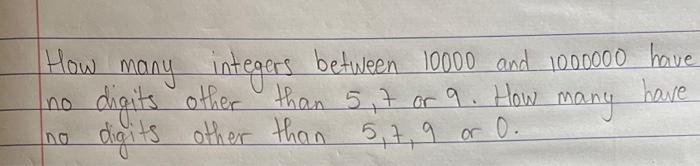 How many integers between 10000 and 1000000 have
no digits other than 5,7 or 9. How many have
no digits other than 5,7,9 or 0.